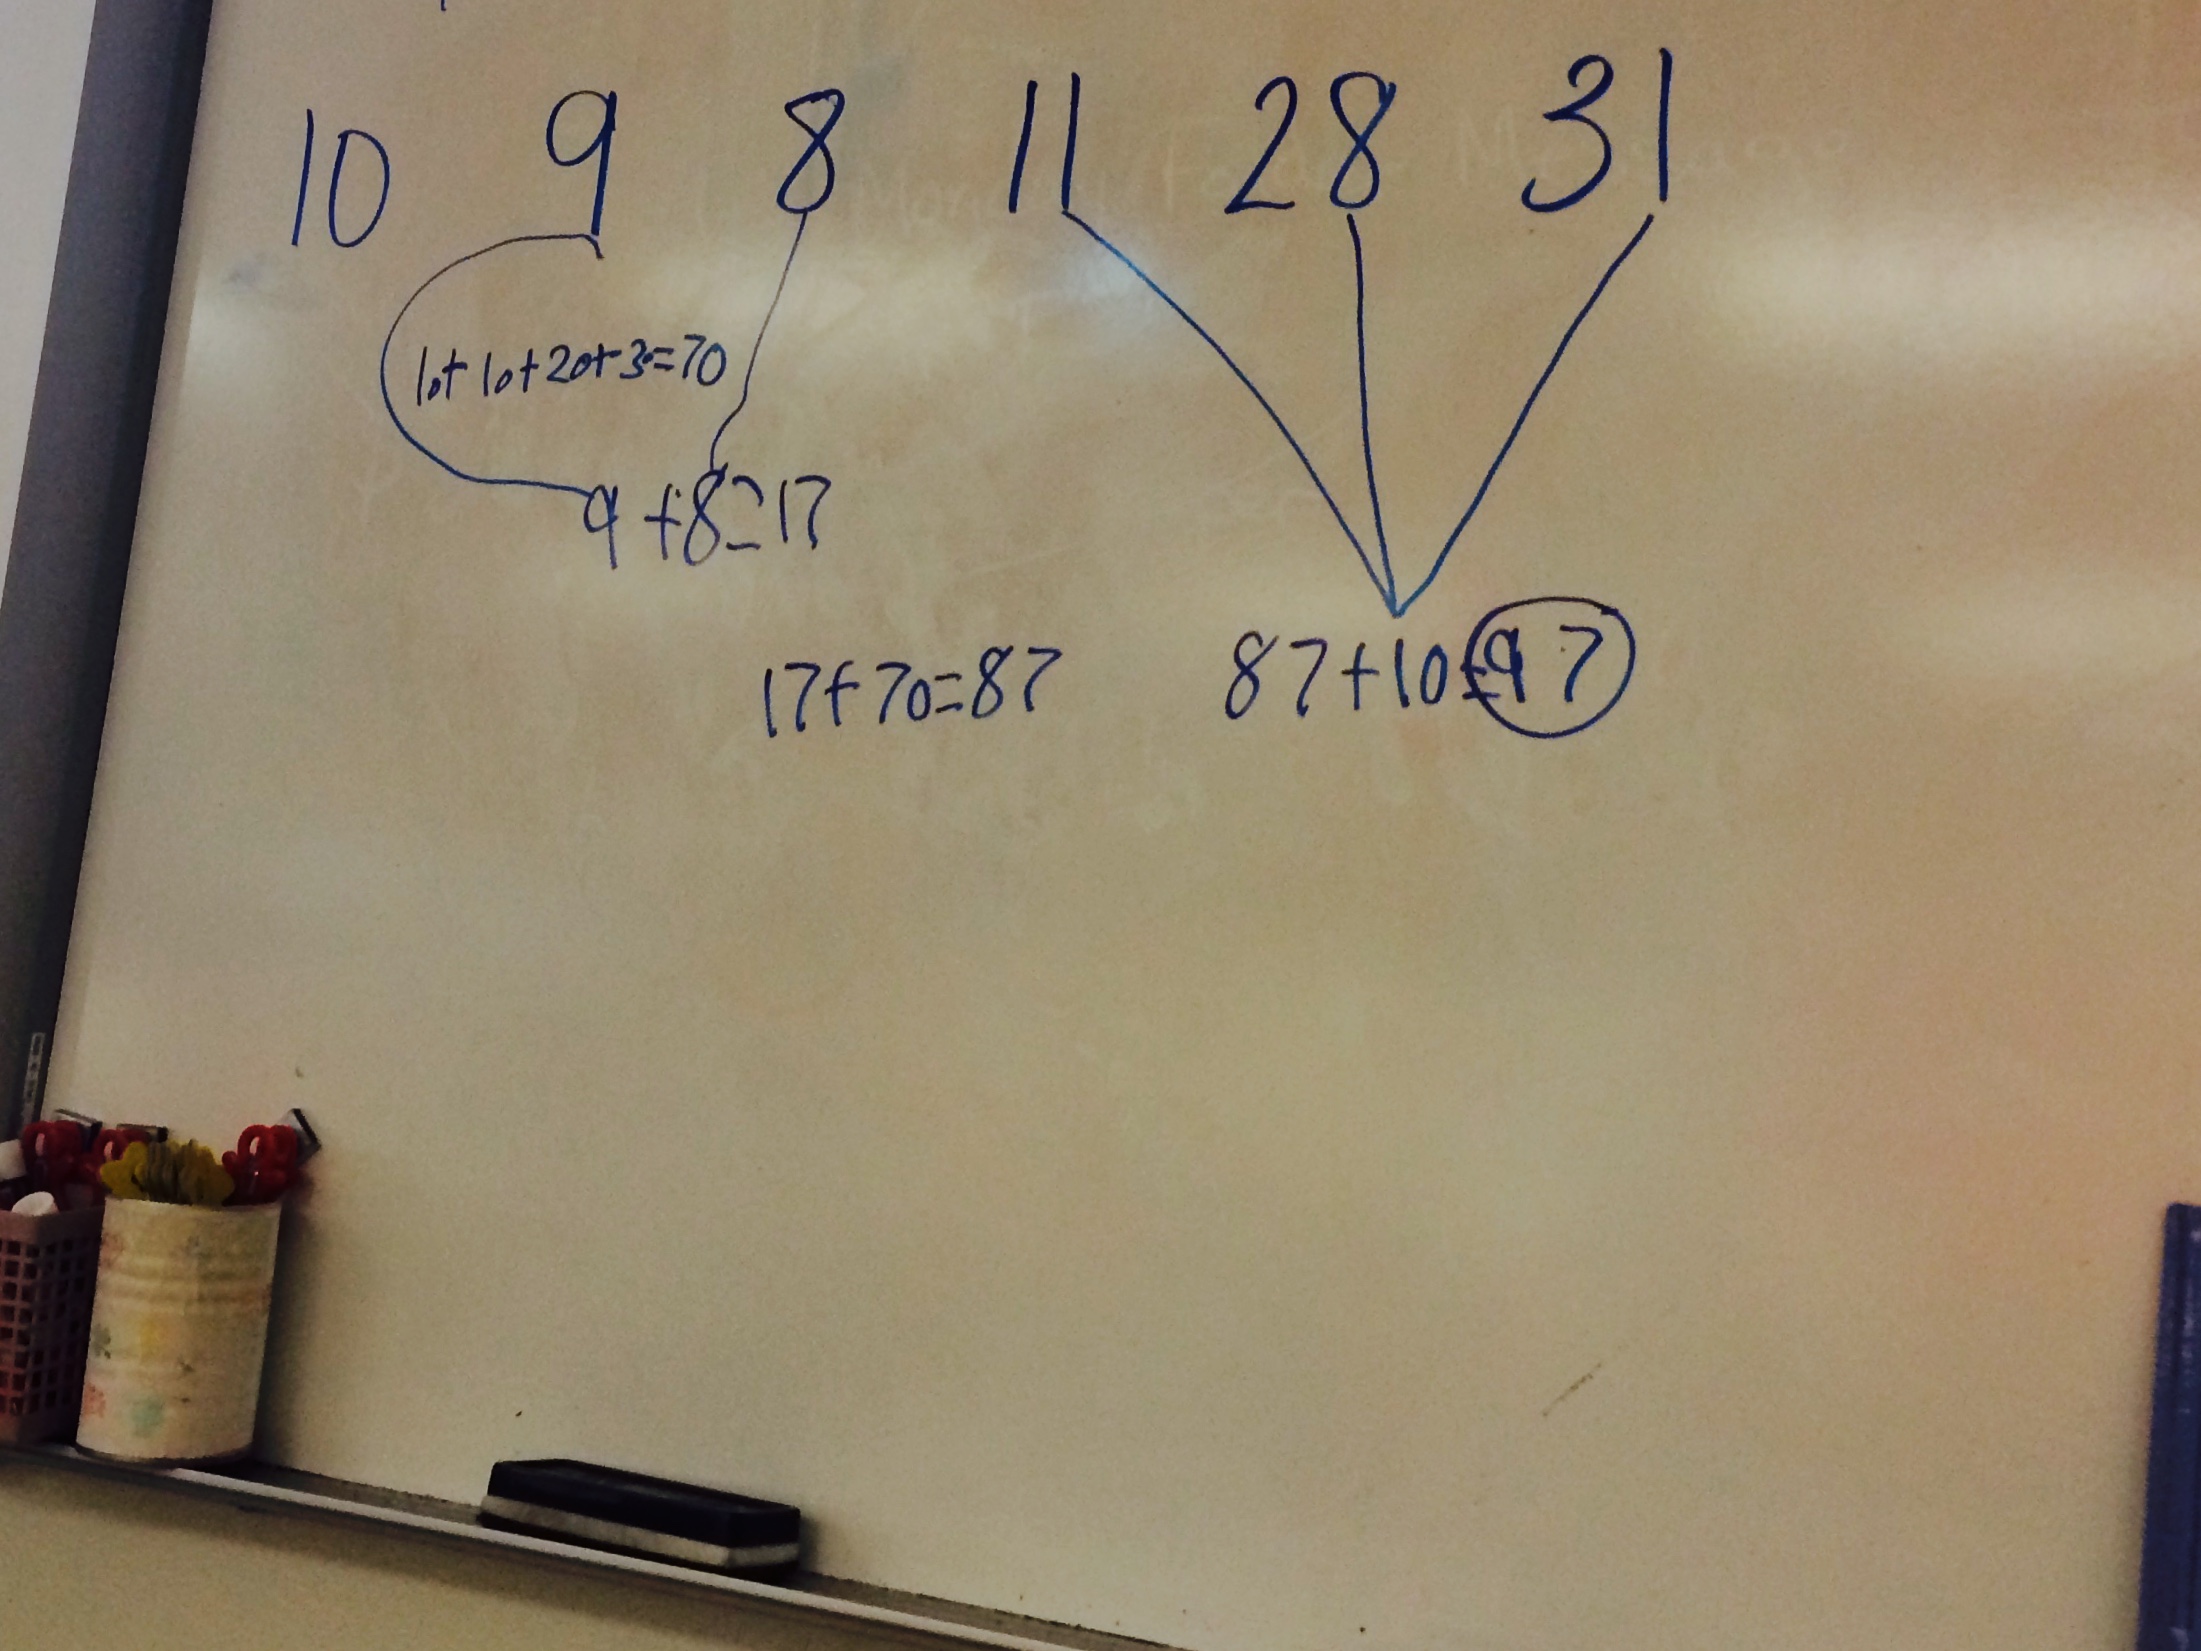 10 9 8 11 28 31
10+10+20+30=70
9+8=17
17+70=87 87+10=97